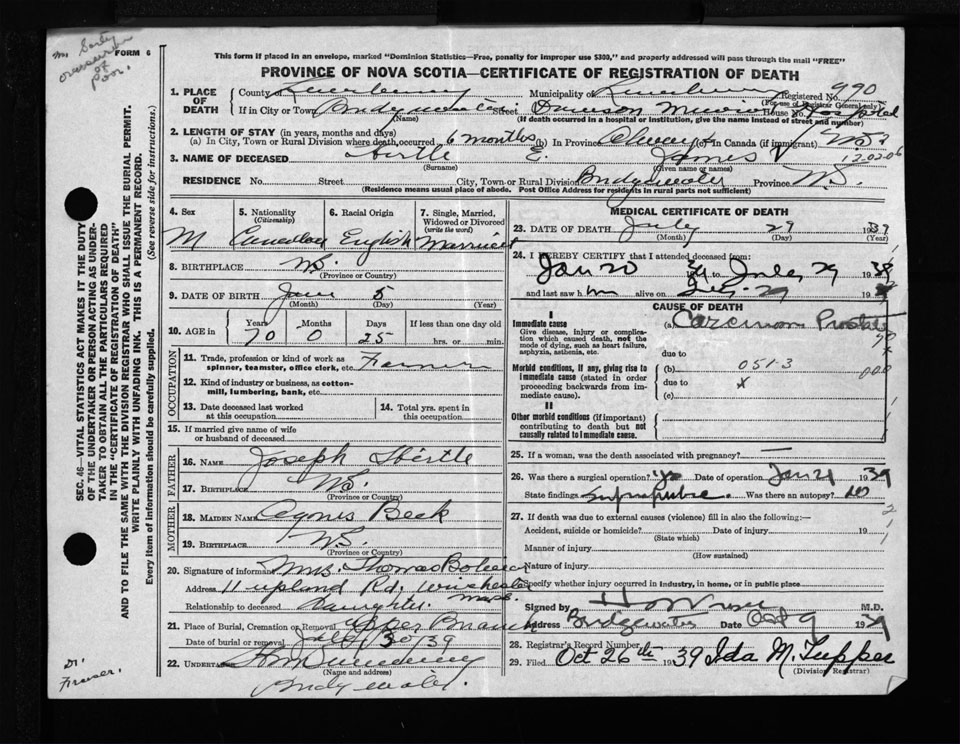 FORM 6
This form if placed in an envelope, marked "Dominion Statistics—Free, penalty for improper use $300," and properly addressed will pass through the mail "FREE"
PROVINCE OF NOVA SCOTIA—CERTIFICATE OF REGISTRATION OF DEATH
1. PLACE OF DEATH
County of Lunenburg Municipality of Lunenburg Registered No. 990
(For use of Registrar General only)
If in City or Town Bridgewater Street Dawson Memorial House No. Hospital
(Name) (If death occurred in a hospital or institution, give the name instead of street and number)
2. LENGTH OF STAY (in years, months and days)
(a) In City, Town or Rural Division where death occurred 6 months (b) In Province Always (c) In Canada (if immigrant)
12.02.06
3. NAME OF DECEASED Hirtle E. James V
(Surname) (Given name or names)
RESIDENCE No. Street City, Town or Rural Division Bridgewater Province N.S.
(Residence means usual place of abode. Post Office Address for residents in rural parts not sufficient)
4. Sex
M
5. Nationality (Citizenship)
Canadian
6. Racial Origin
English
7. Single, Married, Widowed or Divorced (write the word)
Married
8. BIRTHPLACE N.S.
(Province or Country)
9. DATE OF BIRTH 5
(Month) (Day) (Year)
10. AGE in Years Months Days If less than one day old
70 0 25 hrs. or min.
OCCUPATION
11. Trade, profession or kind of work as spinner, teamster, office clerk, etc. Farmer
12. Kind of industry or business, as cotton-mill, lumbering, bank, etc.
13. Date deceased last worked at this occupation
14. Total yrs. spent in this occupation
15. If married give name of wife or husband of deceased
FATHER
16. NAME Joseph Hirtle
17. BIRTHPLACE N.S.
(Province or Country)
MOTHER
18. MAIDEN NAME Agnes Beck
19. BIRTHPLACE N.S.
(Province or Country)
20. Signature of informant Mrs. Thomas
Address 11 upland Rd. Winchester Mass.
Relationship to deceased daughter.
21. Place of Burial, Cremation or Removal Upper Branch
Date of burial or removal 30/39
22. UNDERTAKER
(Name and address)
Bridgewater
MEDICAL CERTIFICATE OF DEATH
23. DATE OF DEATH July 29 1939
(Month) (Day) (Year)
24. I HEREBY CERTIFY that I attended deceased from:
Jan 20 39 to July 29 1939
and last saw him alive on 29 19
CAUSE OF DEATH
I
Immediate cause
Give disease, injury or complication which caused death, not the mode of dying, such as heart failure, asphyxia, asthenia, etc.
(a) Carcinoma Prostate
due to
Morbid conditions, if any, giving rise to immediate cause (stated in order proceeding backwards from immediate cause).
(b) 051-3
due to x
(c)
II
Other morbid conditions (if important) contributing to death but not causally related to immediate cause.
25. If a woman, was the death associated with pregnancy? —
26. Was there a surgical operation? Yes Date of operation Jan 21 1939
State findings Suprapubic Was there an autopsy? No
27. If death was due to external causes (violence) fill in also the following:—
Accident, suicide or homicide? Date of injury 19
(State which)
Manner of injury
(How sustained)
Nature of injury
Specify whether injury occurred in industry, in home, or in public place
Signed by M.D.
Address Bridgewater Date Oct 9 1939
28. Registrar's Record Number
29. Filed Oct 26th 1939 Ida M. Tupper
(Division Registrar)
SEC. 46—VITAL STATISTICS ACT MAKES IT THE DUTY
OF THE UNDERTAKER OR PERSON ACTING AS UNDER-
TAKER TO OBTAIN ALL THE PARTICULARS REQUIRED
IN THE "CERTIFICATE OF REGISTRATION OF DEATH"
AND TO FILE THE SAME WITH THE DIVISION REGISTRAR WHO SHALL ISSUE THE BURIAL PERMIT.
WRITE PLAINLY WITH UNFADING INK. THIS IS A PERMANENT RECORD.
Every item of information should be carefully supplied. (See reverse side for instructions.)
Dr. Fraser.